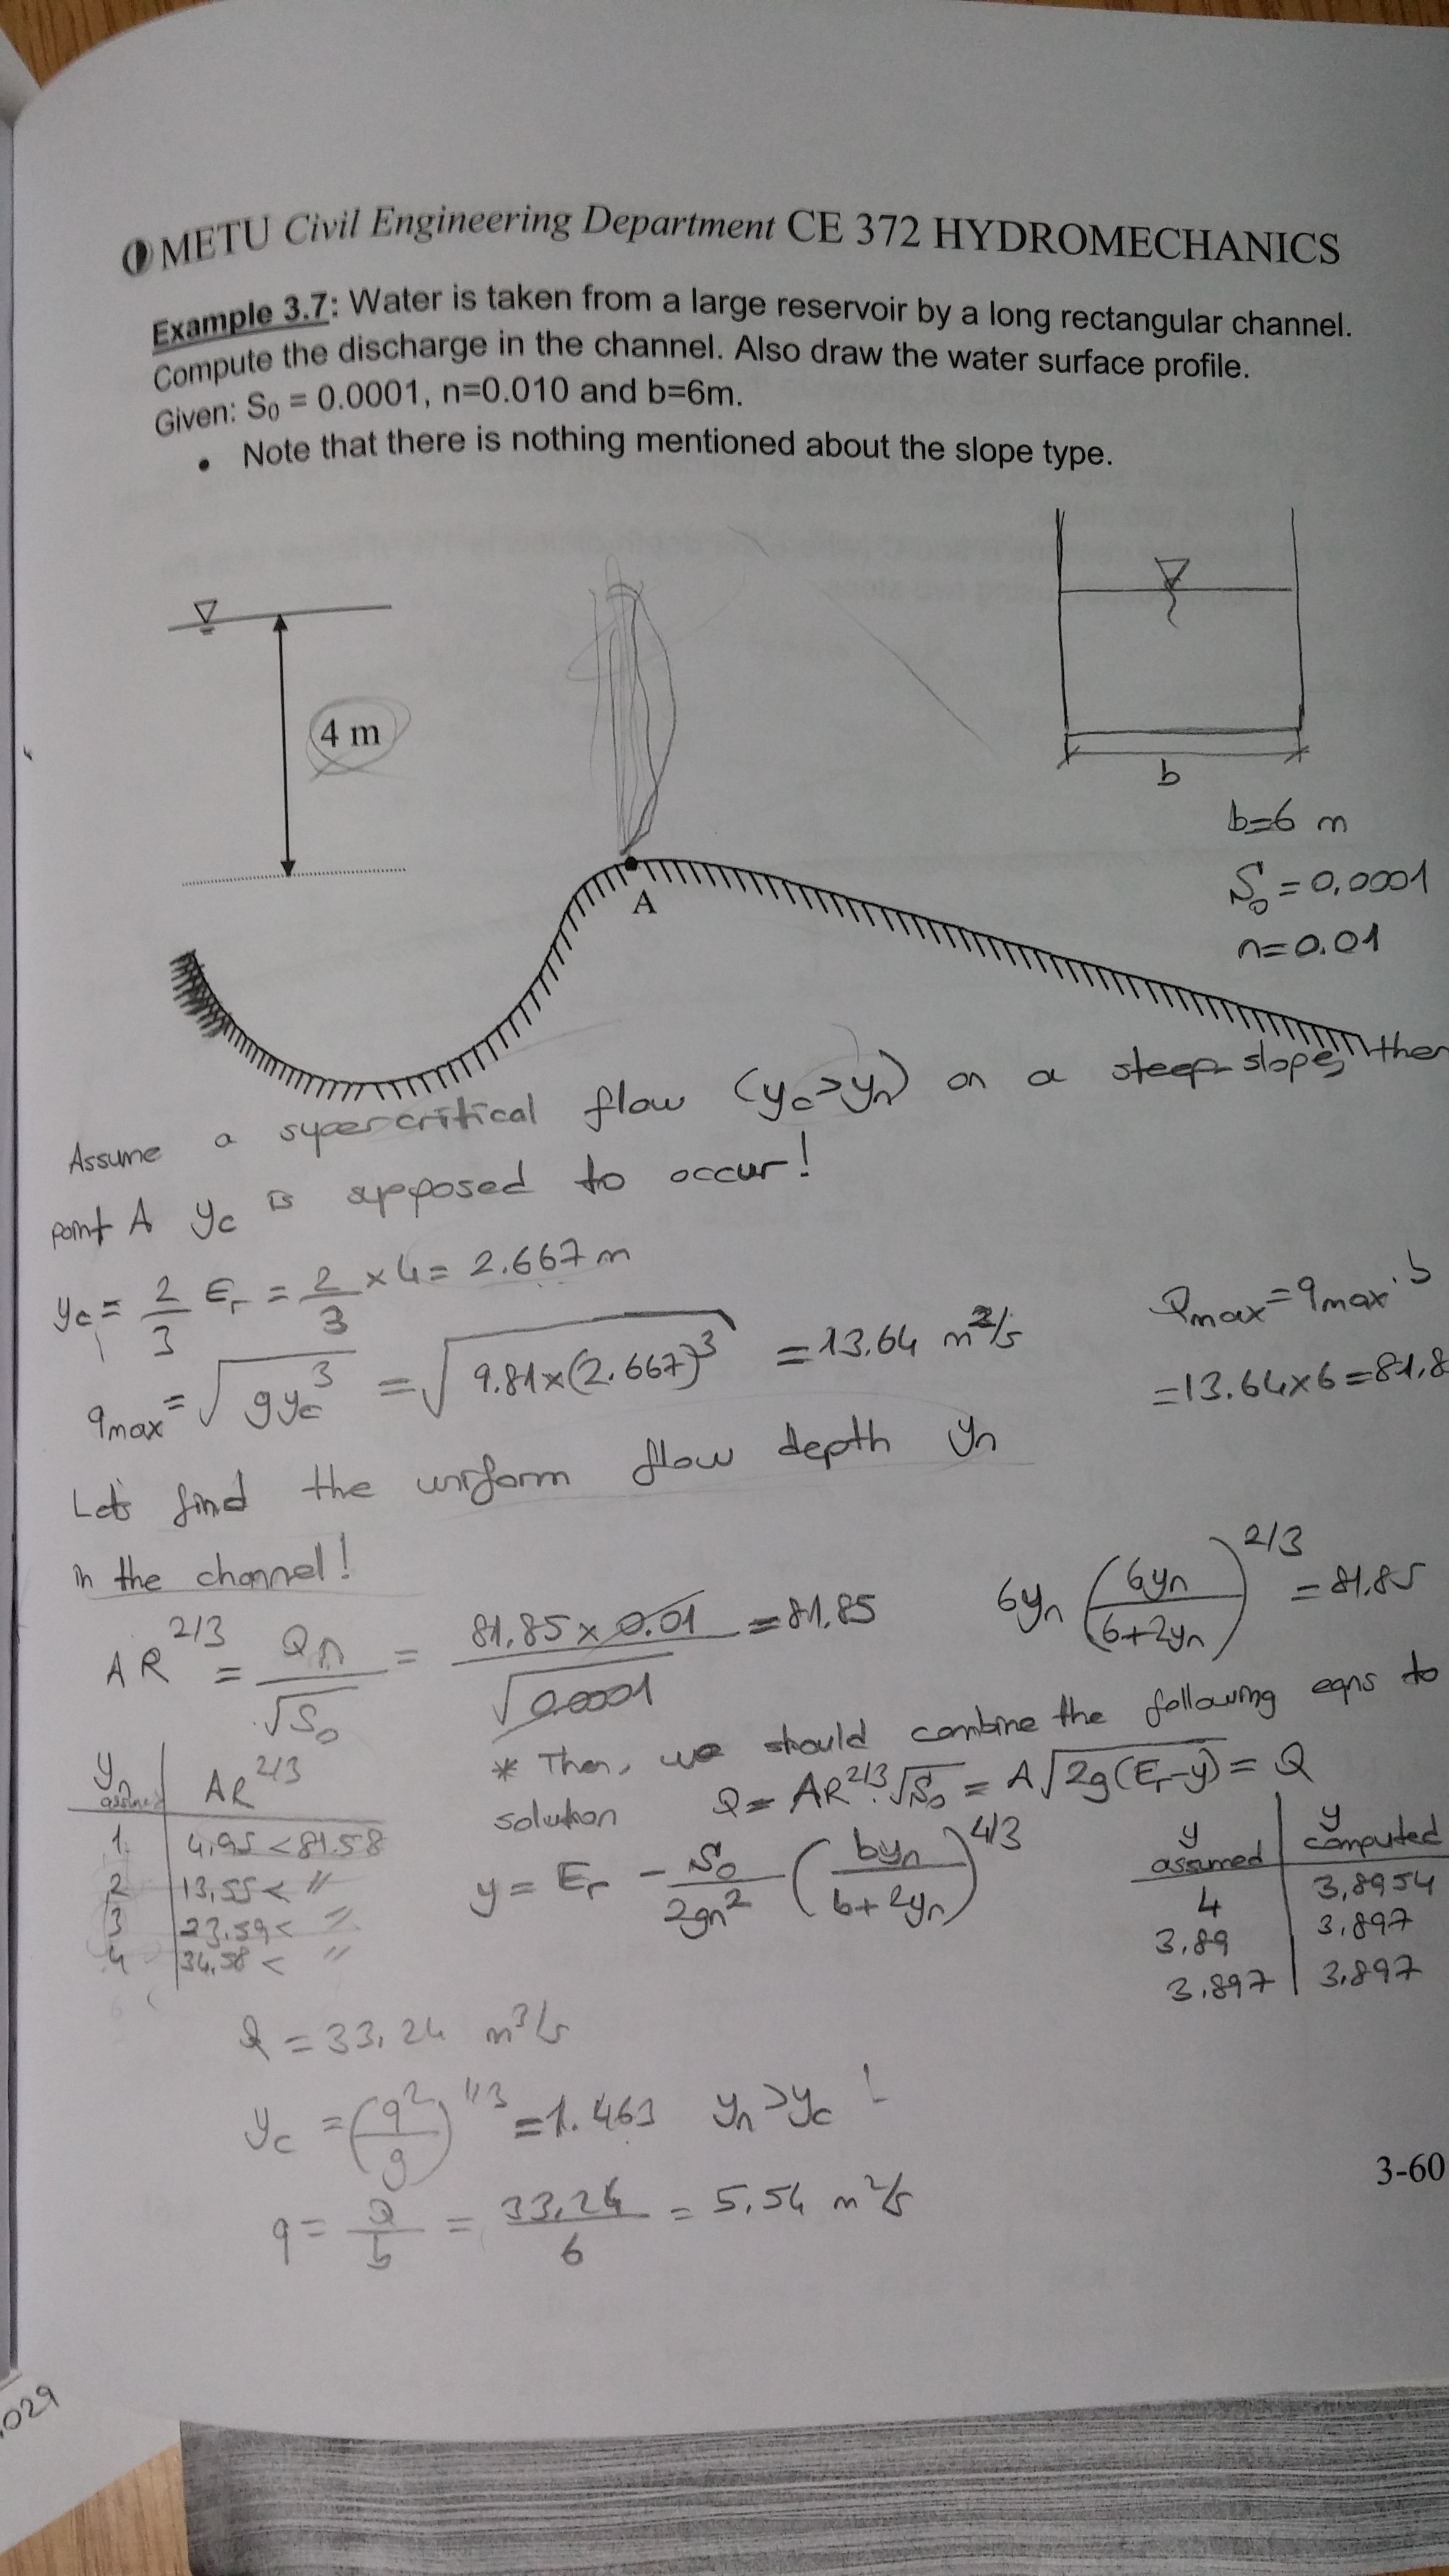 METU Civil Engineering Department CE 372 HYDROMECHANICS
Example 3.7: Water is taken from a large reservoir by a long rectangular channel.
Compute the discharge in the channel. Also draw the water surface profile.
Given: S0 = 0.0001, n=0.010 and b=6m.
• Note that there is nothing mentioned about the slope type.
4 m
A
b
b=6 m
S0 = 0.0001
n=0.01
Assume a supercritical flow (yc>yn) on a steep slope, then
point A yc is supposed to occur!
yc = 2/3 Er = 2/3 x 4 = 2.667 m
qmax = √gyc^3 = √9.81x(2.667)^3 = 13.64 m^2/s
Qmax = qmax . b
=13.64x6=81.8
Let's find the uniform flow depth yn
in the channel!
AR^2/3 = Qn/√S0 = 81.85 x 0.01/√0.0001 = 81.85
6yn (6yn/6+2yn)^2/3 = 81.85
yn assumed | AR^2/3
1 | 4,95 < 81.58
2 | 13,55 < "
3 | 23,59 < "
4 | 34,58 < "
* Then, we should combine the following eqns to
solution Q = AR^2/3.√S0 = A√2g(Er-y) = Q
y = Er - S0/2gn^2 (byn/b+2yn)^4/3
y assumed | y computed
4 | 3,8954
3,89 | 3,897
3,897 | 3,897
Q = 33,24 m^3/s
yc = (q^2/g)^1/3 = 1.463 yn>yc !
q = Q/b = 33,24/6 = 5,54 m^2/s
3-60
029